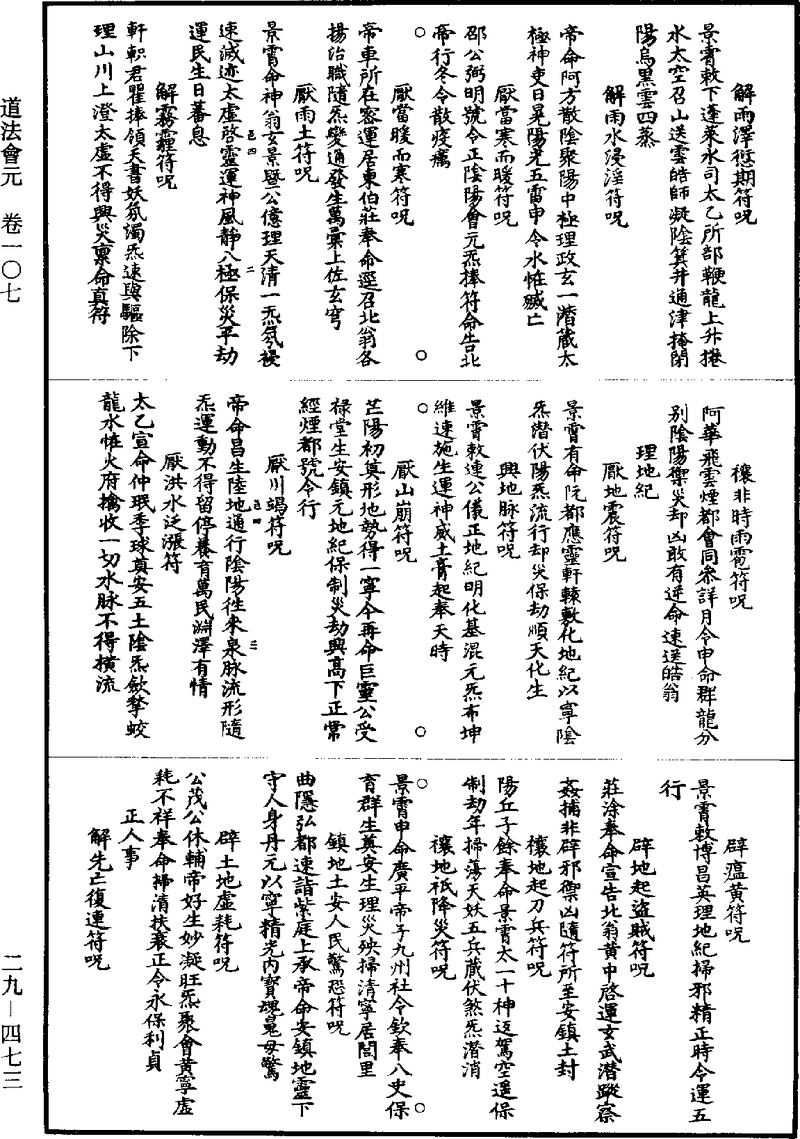 道法會元 卷一〇七
二九—四七三
解雨澤愆期符呪
景霄敕下蓬萊水司太乙所部鞭龍上升捲
水太空召山送雲皓師凝陰箕井通津掩閉
陽烏黑雲四蒸
解雨水浸淫符呪
帝命阿方散陰聚陽中極理政玄一潛藏太
極神吏日晃陽光五雷申令水怪滅亡
厭當寒而暖符呪
邵公弼明號令正陰陽會元炁捧符命告北
帝行冬令散疫癘
厭當暖而寒符呪
帝車所在密運居東伯莊奉命逕召北翁各
揚治職隨炁變通發生萬彙上佐玄穹
厭雨土符呪
景霄命神翁玄景暨公億理天清一炁氛祲
速滅迹太虛啓靈運神風靜八極保災平劫
運民生日蕃息
解霧霾符呪
軒軹君瞿捧領天書妖氛濁炁速與驅除下
理山川上澄太虛不得興災稟命真符
禳非時雨雹符呪
阿華飛雲煙都會同叅詳月令申命群龍分
別陰陽禦災却凶敢有逆命速送皓翁
理地紀
厭地震符呪
景霄有命阮都應靈軒轅敷化地紀以寧陰
炁潛伏陽炁流行却災保劫順天化生
興地脉符呪
景霄敕連公儀正地紀明化基混元炁布坤
維速施生運神威土膏起奉天時
厭山崩符呪
芒陽初奠形地勢得一寧今再命巨靈公受
祿堂生安鎮元地紀保制災劫興高下正常
經煙都號令行
厭川竭符呪
帝命昌生陸地通行陰陽徃來泉脉流形隨
炁運動不得留停養育萬民淵澤有情
厭洪水泛漲符
太乙宣命仲珉季球奠安五土陰炁歛孥蛟
龍水怪火府擒收一切水脉不得横流
辟瘟黄符呪
景霄敕博昌英理地紀掃邪精正時令運五
行
辟地起盜賊符呪
莊涂奉命宣告北翁黄中啓運玄武潛蹤察
姦捕非辟邪禦凶隨符所至安鎮土封
禳地起刀兵符呪
陽丘子餘奉命景霄太一十神返駕空遥保
制劫年掃蕩天妖五兵藏伏煞炁潛消
禳地祇降災符呪
景霄申命廣平帝子九州社令欽奉八史保
育群生奠安生理災殃掃清寧居閭里
鎮地土安人民驚恐符呪
曲隱弘都速詣紫庭上承帝命安鎮地靈下
守人身丹元以寧精光内寳魂鬼毋驚
辟土地虛耗符呪
公茂公休輔帝好生妙凝旺炁聚會黄寧虛
耗不祥奉命掃清扶衰正令永保利貞
正人事
解先亡復連符呪